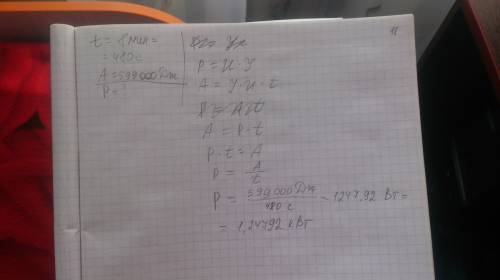 t = 8 мин =
= 480 с
A = 599000 Дж
P = ?
P = U · У
A = У · U · t
A = P · t
P · t = A
P = A/t
P = 599000 Дж / 480 с = 1247,92 Вт =
= 1,24792 кВт